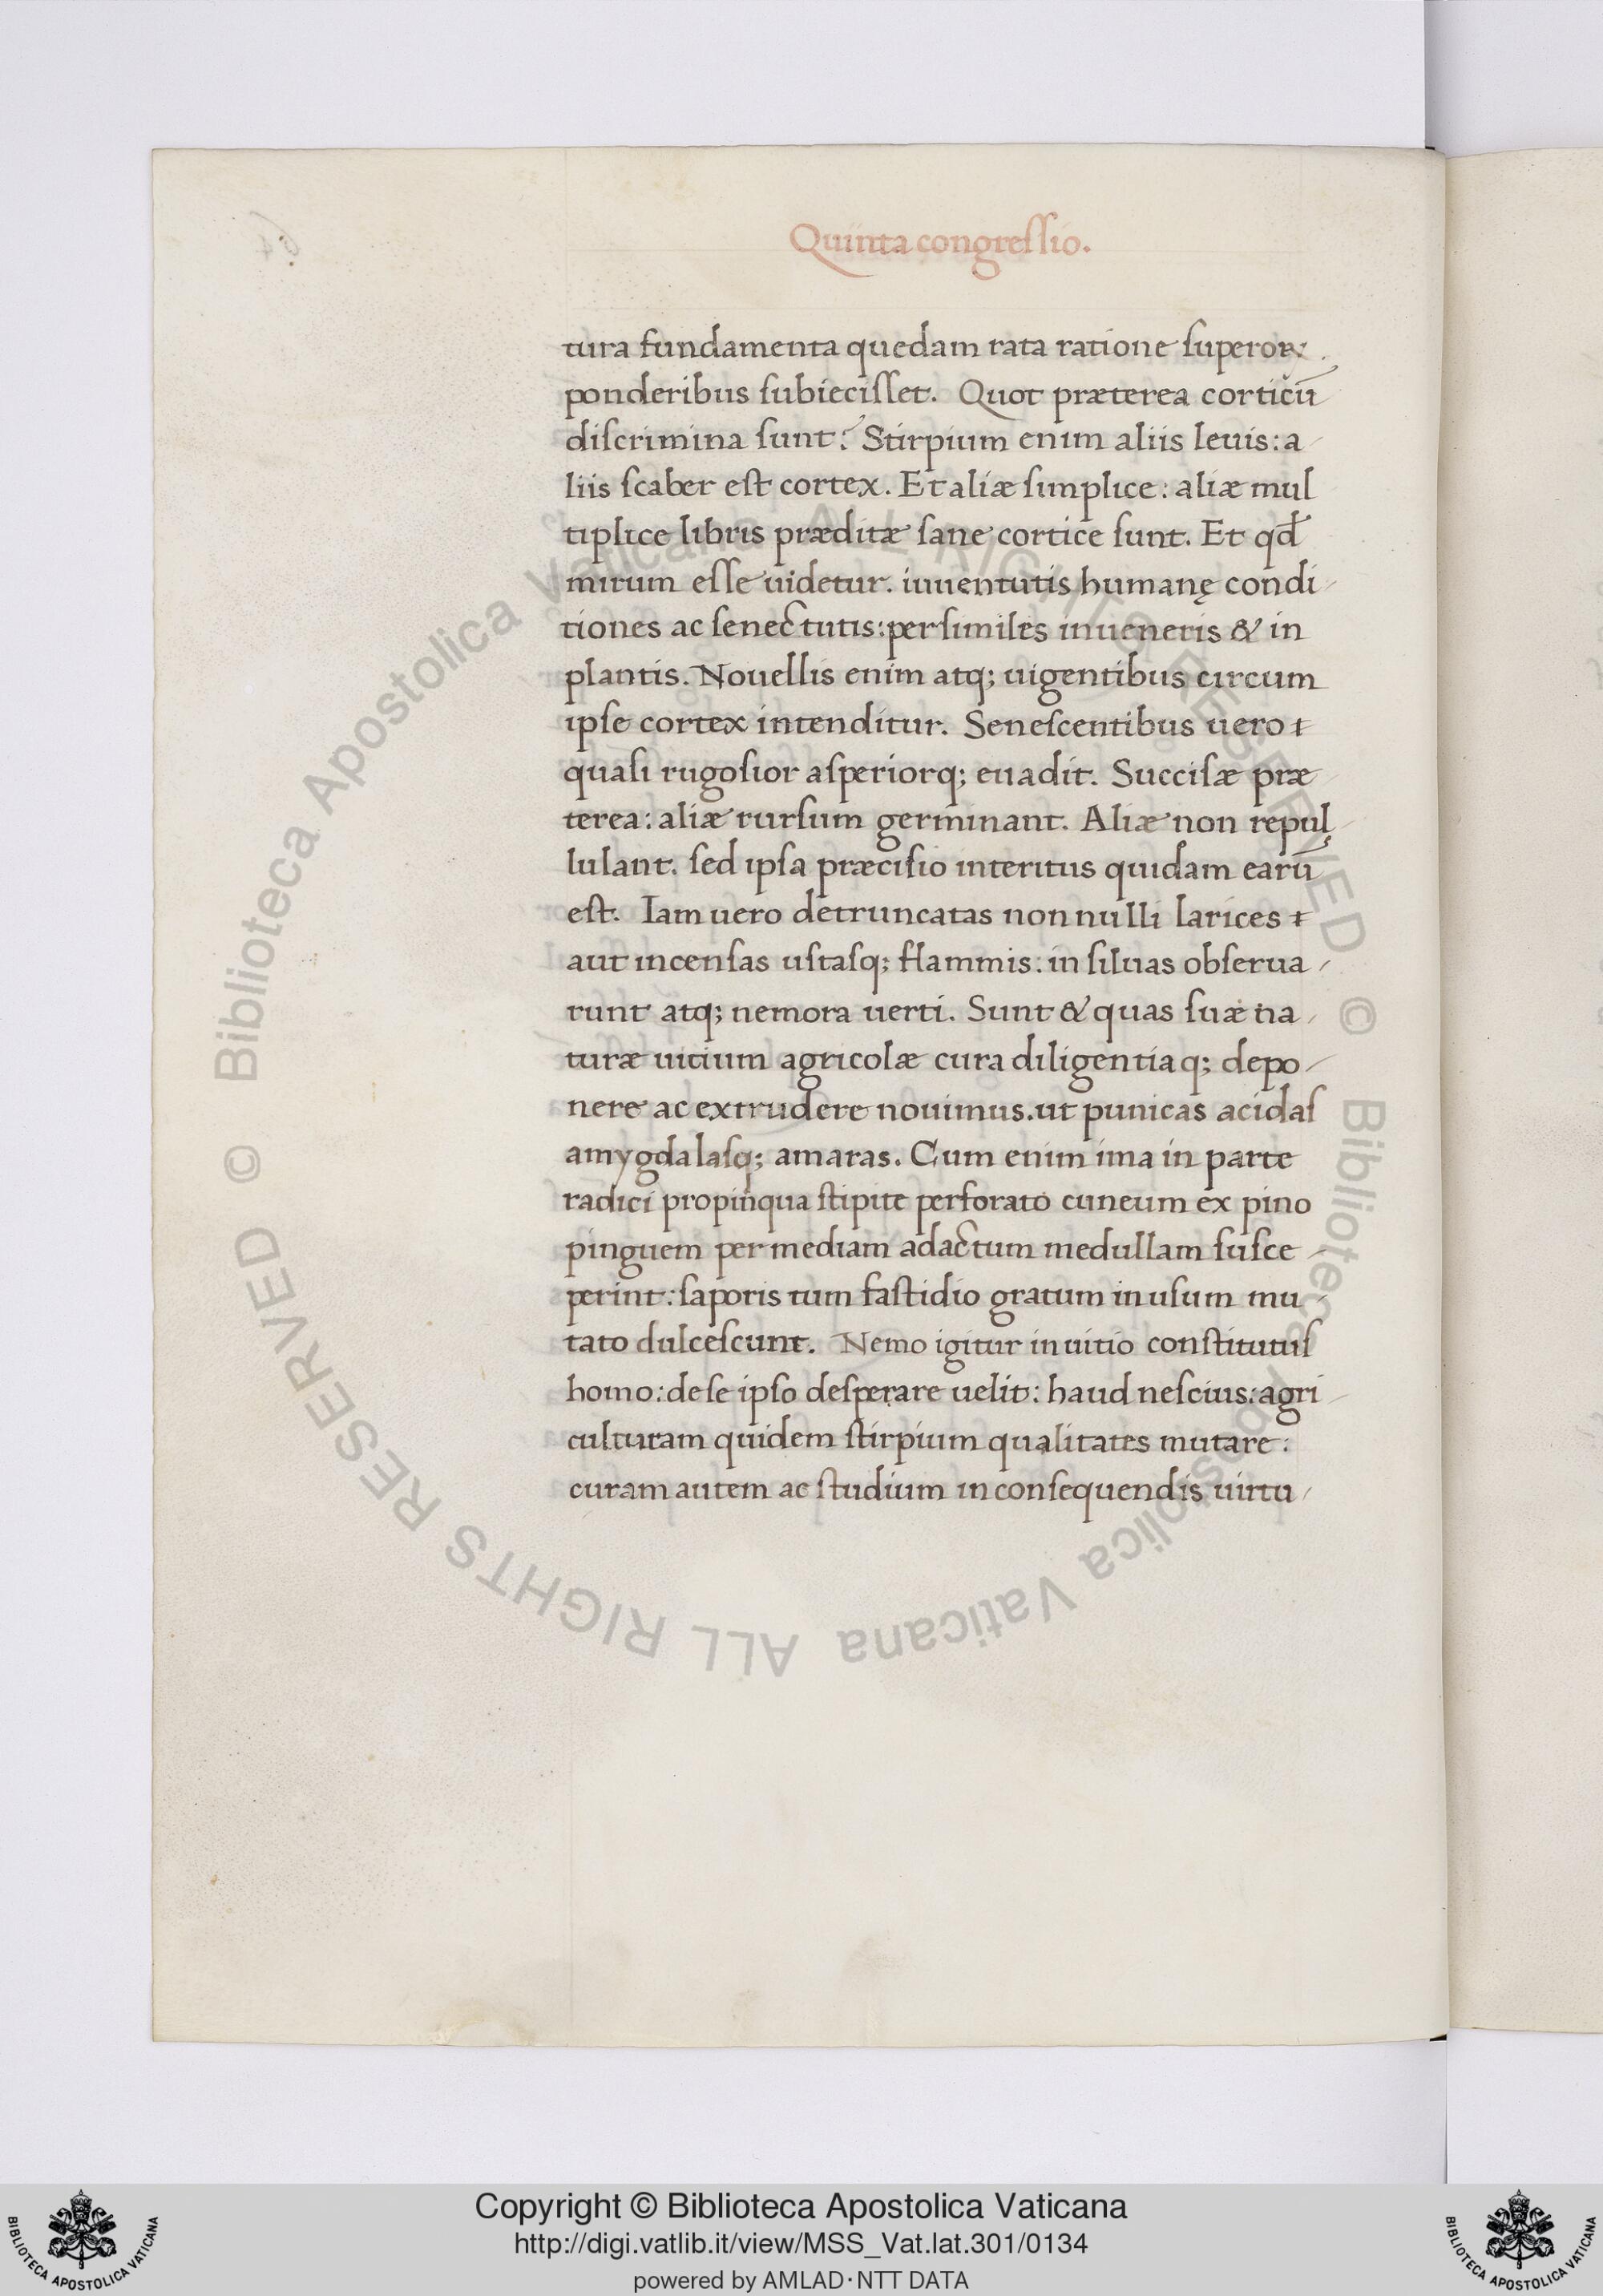 Quinta congressio.
tura fundamenta quedam rata ratione superoꝝ
ponderibus subiecisset. Quot præterea corticū
discrimina sunt? Stirpium enim aliis leuis: a
liis scaber est cortex. Et aliæ simplice: aliæ mul
tiplice libris præditæ sane cortice sunt. Et qđ
mirum esse uidetur. iuuentutis humanę condi
tiones ac senectutis: persimiles inueneris & in
plantis. Nouellis enim atq; uigentibus circum
ipse cortex intenditur. Senescentibus uero
quasi rugosior asperiorq; euadit. Succisæ præ
terea: aliæ rursum germinant. Aliæ non repul
lulant. sed ipsa præcisio interitus quidam earū
est. Iam uero detruncatas nonnulli larices
aut incensas ustasq; flammis: in siluas obserua
runt atq; nemora uerti. Sunt & quas suæ na
turæ uitium agricolæ cura diligentiaq; depo
nere ac extrudere nouimus. ut punicas acidas
amygdalasq; amaras. Cum enim ima in parte
radici propinqua stipite perforato cuneum ex pino
pinguem per mediam adactum medullam susce
perint: saporis tum fastidio gratum in usum mu
tato dulcescunt. Nemo igitur in uitio constitutus
homo: de se ipso desperare uelit: haud nescius: agri
culturam quidem stirpium qualitates mutare:
curam autem ac studium in consequendis uirtu
© Biblioteca Apostolica Vaticana ALL RIGHTS RESERVED © Biblioteca Apostolica Vaticana ALL RIGHTS RESERVED
Copyright © Biblioteca Apostolica Vaticana
http://digi.vatlib.it/view/MSS_Vat.lat.301/0134
powered by AMLAD·NTT DATA
BIBLIOTECA APOSTOLICA VATICANA
BIBLIOTECA APOSTOLICA VATICANA